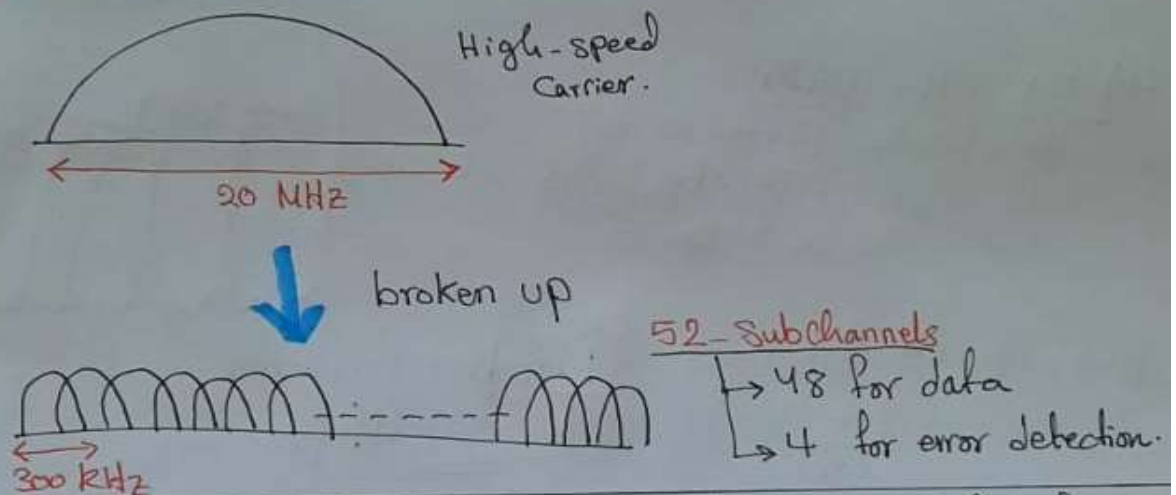 High-speed
Carrier.
20 MHz
broken up
52-Subchannels
48 for data
4 for error detection.
300 kHz